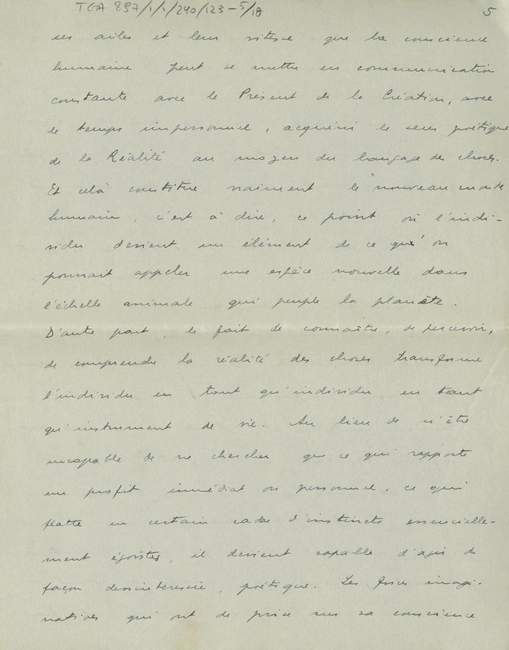 TGA 897/1/1/240/123-5/18
5
ses ailes et leur vitesse que la conscience
humaine peut se mettre en communication
constante avec le Présent de la Création, avec
le temps impersonnel, acquérir le sens poétique
de la Réalité au moyen du langage des choses.
Et celà constitue vraiment le nouveau monde
humain, c'est à dire, ce point où l'indi-
vidu devient un élément de ce qu'on
pourrait appeler une espèce nouvelle dans
l'échelle animale qui peuple la planète.
D'autre part, le fait de connaître, de percevoir,
de comprendre la réalité des choses transforme
l'individu en tant qu'individu, en tant
qu'instrument de vie. Au lieu de n'être
incapable de ne chercher que ce qui rapporte
un profit immédiat ou personnel, ce qui
flatte un certain cadre d'instincts essencielle-
ment égoïstes, il devient capable d'agir de
façon desinteressée, poétique. Les forces imagi-
natives qui ont de prise sur sa conscience